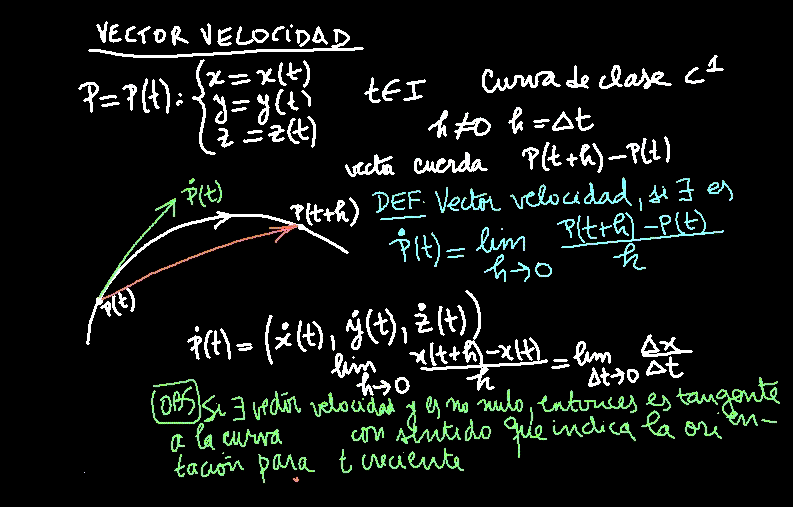 VECTOR VELOCIDAD
P=P(t): { x = x(t)
y = y(t)
z = z(t)
t∈I
curva de clase C¹
h≠0 h=Δt
vector cuerda P(t+h)-P(t)
DEF. Vector velocidad, si ∃ es
Ṗ(t) = lim h→0 P(t+h)-P(t) / h
Ṗ(t)
P(t+h)
P(t)
Ṗ(t) = (ẋ(t), ẏ(t), ż(t))
lim h→0 x(t+h)-x(t) / h = lim Δt→0 Δx / Δt
OBS Si ∃ vector velocidad y es no nulo, entonces es tangente
a la curva con sentido que indica la orien-
tación para t creciente